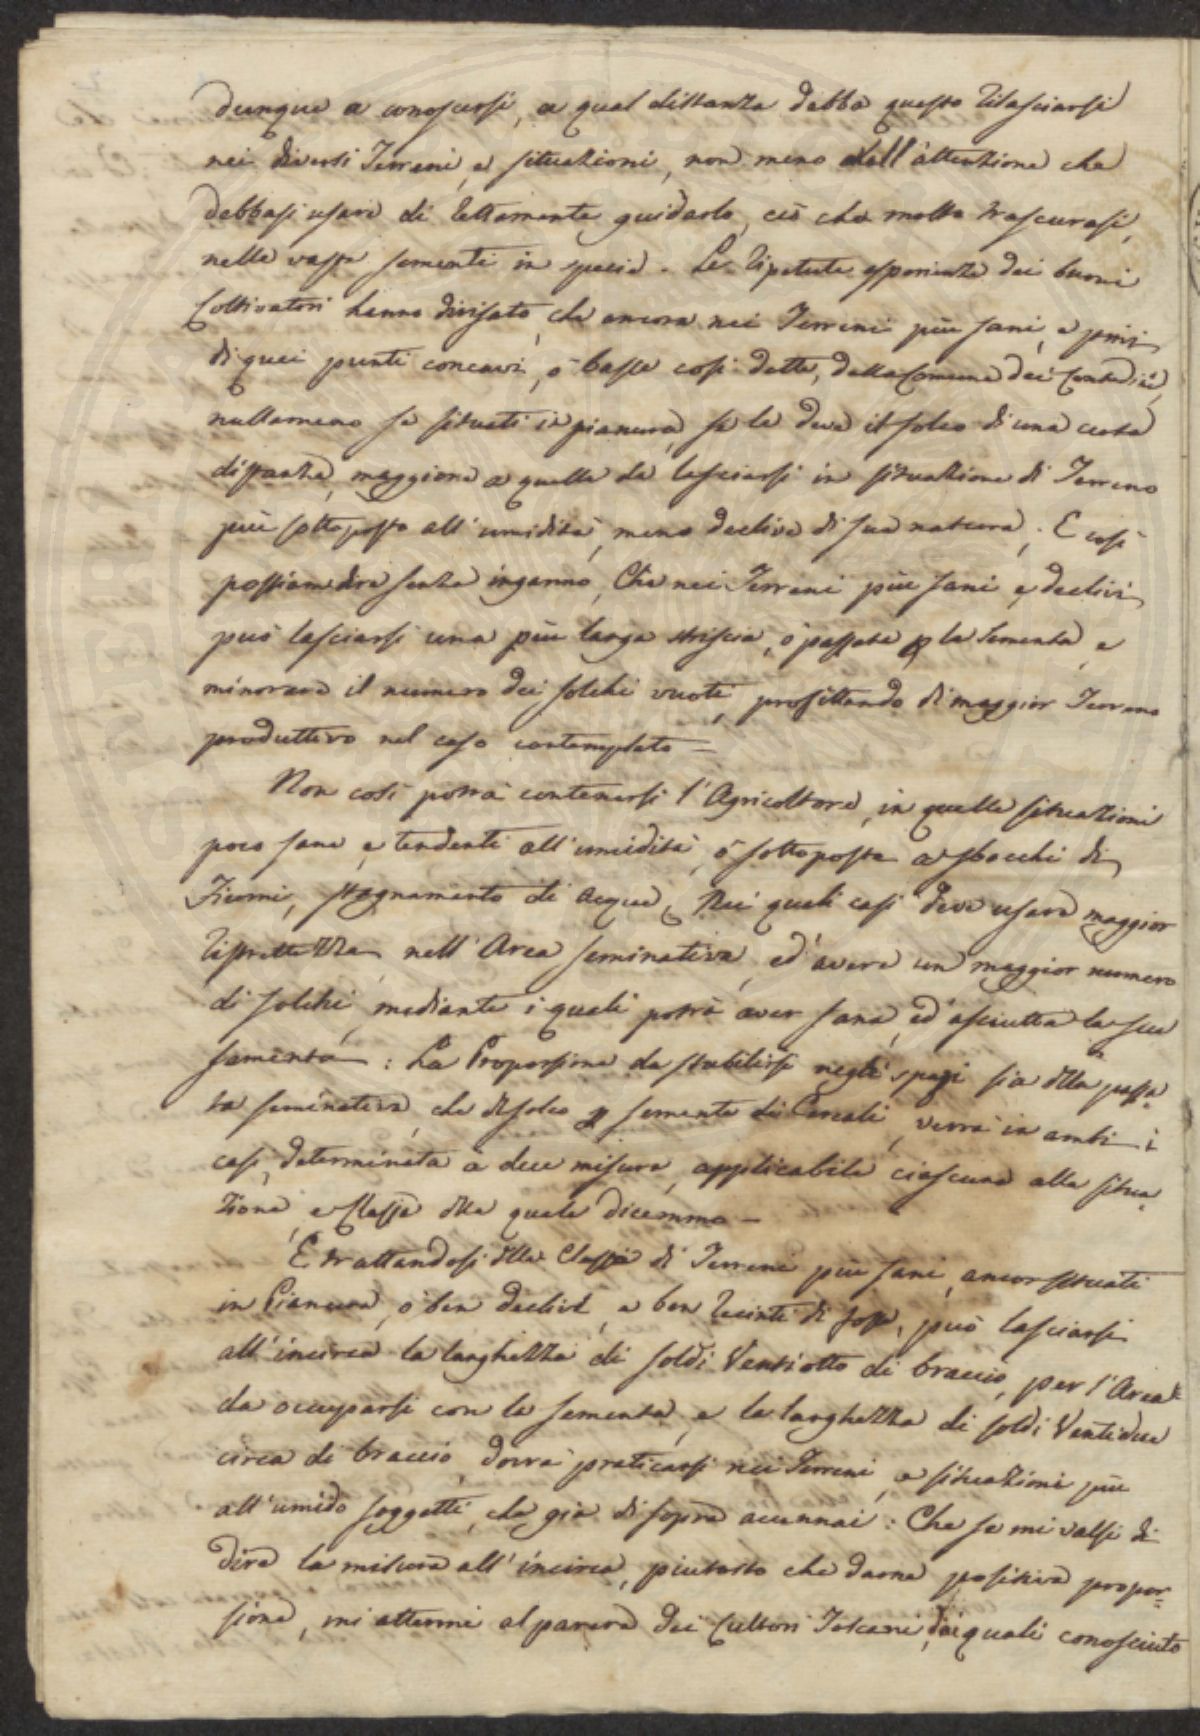 dunque a conoscersi, a qual distanza debba questo rilasciarsi
nei diversi Terreni, e situazioni, non meno dell'attenzione che
debbasi usare di rettamente guidarlo, ciò che molto trascurasi,
nelle vaste sementi in specie. Le ripetute esperienze dei buoni
Coltivatori hanno divisato, che ancora nei Terreni più sani, e privi
di quei punti concavi, ò basse così dette, dalla Comune dei Contadini,
nullameno se situati in pianura, se le deve il solco di una certa
distanza, maggiore a quella da lasciarsi in situazione di Terreno
più sottoposto all'umidità, meno declive di sua natura; E così
possiam dire senza inganno, Che nei Terreni più sani e declivi
può lasciarsi una più larga striscia, ò passata p la Sementa, e
minorare il numero dei solchi vuoti, profittando di maggior Terreno
produttivo nel caso contemplato =
Non così potrà contenersi l'Agricoltore, in quelle situazioni
poco sane, e tendenti all'umidità, ò sottoposte a sbocchi di
Fiumi, stagnamento di acque, Nei quali casi deve usare maggior
ristrettezza nell'Area seminativa, ed'avere un maggior numero
di solchi, mediante i quali potrà aver sana, ed'asciutta la sua
sementa: La Proporsione da stabilirsi negli spazi sia dlla passa
ta seminativa, che di solco p semente di Cereali, verrà in ambi i
casi, determinata a due misure, applicabile ciascuna alla situa
zione, e Classe dlla quale dicemmo —
E trattandosi dlla Classe di Terreni più sani, ancor situati
in Pianura, ò ben declivi, e ben recinti di fosse, può lasciarsi
all'incirca la larghezza di soldi Ventiotto di braccio, per l'Area
da occuparsi con la sementa, e la larghezza di soldi Ventidue
circa di braccio, dovrà praticarsi nei Terreni, e situazioni più
all'umido soggetti, che già di sopra accennai: Che se mi valsi di
dire la misura all'incirca, piutosto che darne positiva propor=
sione, mi attenni al parere dei Cultori Toscani, dai quali conosciuto